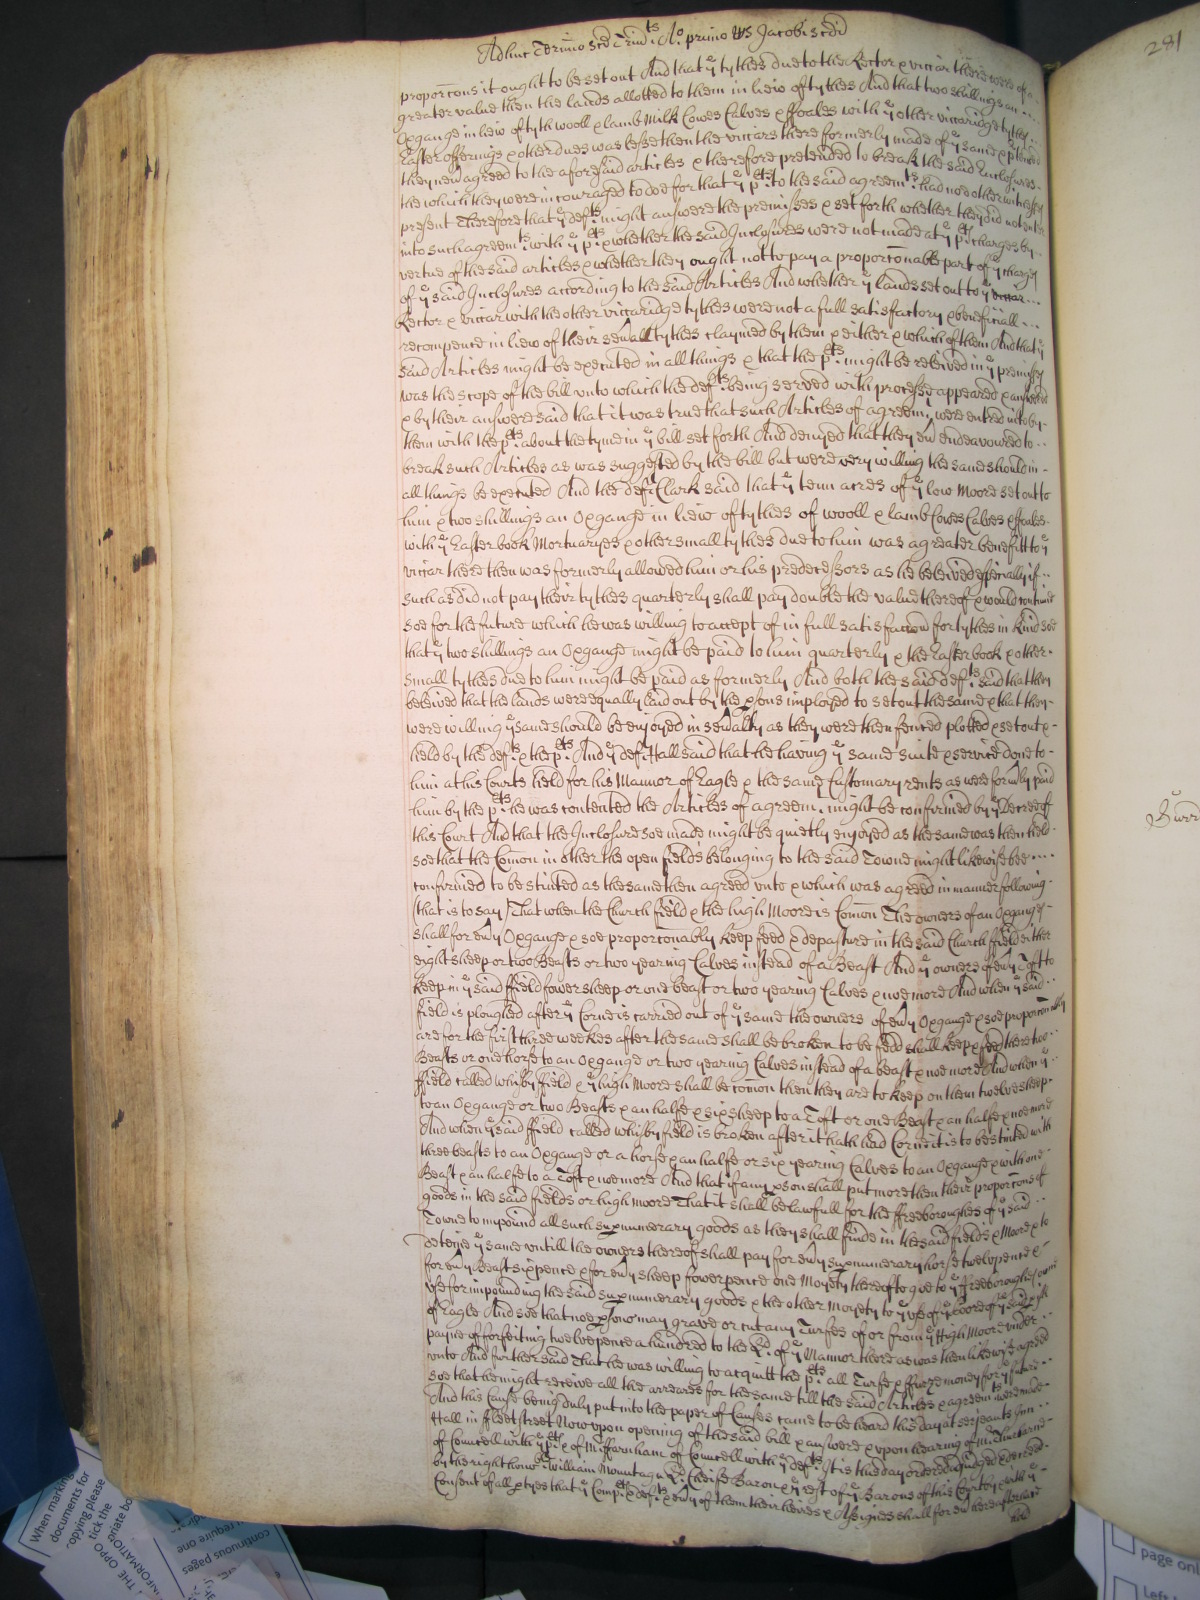 Adhuc Termino Scē Trinitts Ao primo Rs Jacobi scdi
281
proporcons it ought to be set out And that ye tythes due to the Rector & viccar there were of a
greater value then the lands allotted to them in liew of tythes And that two shillings an
Oxgange in liew of tyth wooll & lamb Milk Cowes Calves & ffoales with ye other viccaridge tythes
Easter offerings & other dues was lesse then the viccars there formerly made of ye same &
they new agreed to the aforesaid articles & therefore pretended to break the said Inclosures
the which they were incouraged to doe for that ye plts to the said agreemts had noe other witnesses
present Therefore that ye defts might answere the premisses & set forth whether they did not enter
into such agreemts with ye plts & whether the said Inclosures were not made at ye plts charges by
vertue of the said articles & whether they ought not to pay a proporconable part of ye charges
of ye said Inclosures according to the said Articles And whether ye lands set out to ye
Rector & viccar with the other viccaridge tythes were not a full satisfactory & beneficiall
recompence in liew of their sevall tythes claymed by them & either & which of them And that ye
said Articles might be executed in all things & that the plts might be releived in ye premisses
was the scope of the bill vnto which the defts being served with processe appeared & answered
& by their answere said that it was true that such Articles of agreemt were entred into by
them with the plts about the tyme in ye bill set forth And denyed that they ev endeavoured to
break such Articles as was suggested by the bill but were very willing the same should in
all things be executed And the deft Clark said that ye tenn acres of ye low Moore set out to
him & two shillings an Oxgange in liew of tythes of wooll & lamb Cowes Calves & ffoales
with ye Easter book Mortuaryes & other small tythes due to him was a greater benefitt to ye
viccar there then was formerly allowed him or his predecessors as he beleived especially if
such as did not pay their tythes quarterly shall pay double the value thereof & would continue
soe for the future which he was willing to accept of in full satisfaccon for tythes in kind soe
that ye two shillings an Oxgange might be paid to him quarterly & the Easter book & other
small tythes due to him might be paid as formerly And both the said defts said that they
beleived that the lands were equally laid out by the psons imployed to set out the same & that they
were willing ye same should be enjoyed in sevalty as they were then fenced plotted & set out &
held by the defts & the plts And ye deft Hall said that he having ye same suite & service done to
him at his Courts held for his Mannor of Eagle & the same Customary rents as were formly paid
him by the plts he was contented the Articles of agreemt might be confirmed by ye Decree of
this Court And that the Inclosure soe made might be quietly enjoyed as the same was then held
soe that the Comon in other the open fields belonging to the said Towne might likewise bee
confirmed to be stinted as the same then agreed vnto & which was agreed in manner following
(that is to say) That when the Church field & the high Moore is Comon The owners of an Oxgange
shall for evy Oxgange & soe proporconably keep feed & depasture in the said Church ffield either
eight sheep or two Beasts or two yearing Calves instead of a Beast And ye owners of evy Toft to
keep in ye said ffield fower sheep or one beast or two yearing Calves & noe more And when ye said
field is ploughed after ye Corne is carried out of ye same the owners of evy Oxgange & soe proporconably
are for the first three weekes after the same shall be broken to be fedd shall keep & feed there two
Beasts or one horse to an Oxgange or two yearing Calves instead of a beast & noe more And when ye
ffield called whisby ffield & ye high Moore shall be comon then they are to keep on them twelve sheep
to an Oxgange or two Beasts & an halfe & six sheep to a Toft or one Beast & an halfe & noe more
And when ye said ffield called whisby field is broken after it hath had Corne it is to be stinted with
three beasts to an Oxgange or a horse & an halfe or six yearing Calves to an Oxgange & with one
Beast & an halfe to a Toft & noe more And that if any pson shall put more then their proporcons of
goods in the said fields or high moore That it shall be lawfull for the ffreeboroughes of ye said
Towne to impound all such supnumerary goods as they shall finde in the said fields & Moore & to
deteyne ye same vntill the owners thereof shall pay for evy supnumerary horse twelvpence &
for evy Beast sixpence & for evy sheep fowerpence one Moyety thereof to goe to ye ffreeboroughes owne
vse for impounding the said supnumerary goods & the other Moyety to ye vse of ye poore of ye said pish
of Eagle And soe that noe pson may grave or cut any Turfes of or from ye High Moore vnder
payne of forfeiting twelvepence a hundred to the Ld of ye Mannor there as was then likewise agreed
vnto And further said That he was willing to acquitt the plts all Turfe & ffurze money for ye future
soe that he might receive all the arreares for the same till the said Articles & agreemts were made
And this Cause being duly put into the paper of Causes came to be heard this day at Serjeants Inn
Hall in ffleetstreet Now vpon opening of the said bill & answere & vpon hearing of Mr
of Councell with ye plts & of Mr ffarnham of Councell with ye defts It is this day ordered adjudged & decreed
by the right honoble William Mountagu Ld Cheife Baron & ye rest of ye Barons of this Court by & with ye
Consent of all ptyes that ye Complts & defts & evy of them their heires & Assignes shall for ev hereafter